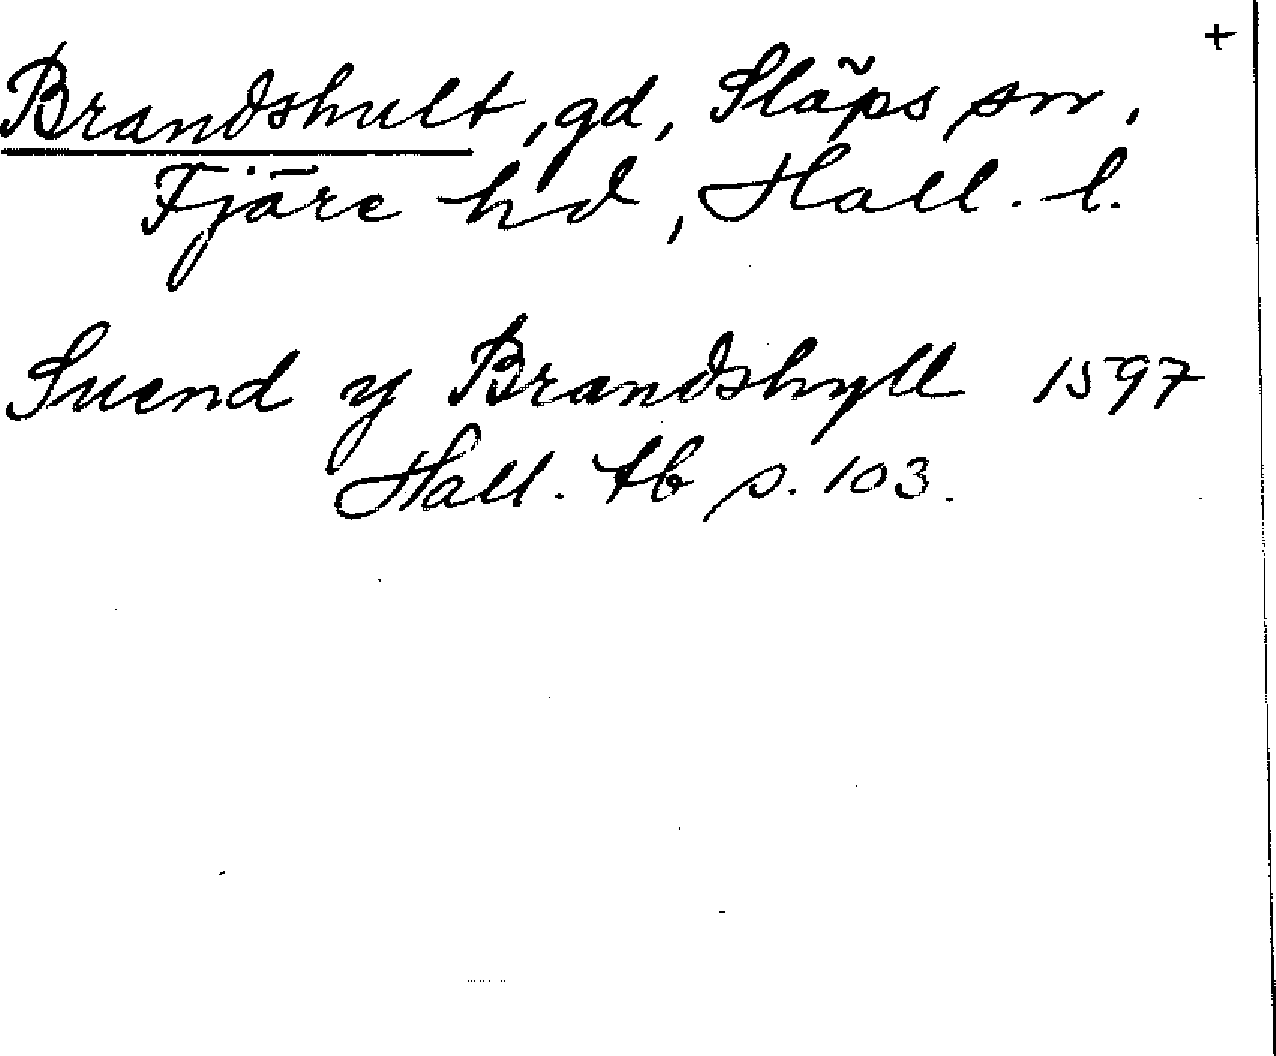 +
Brandshult, gd, Släps sn,
Fjäre hd, Hall. l.
Suend y Brandshyll 1597
Hall. tb s. 103.